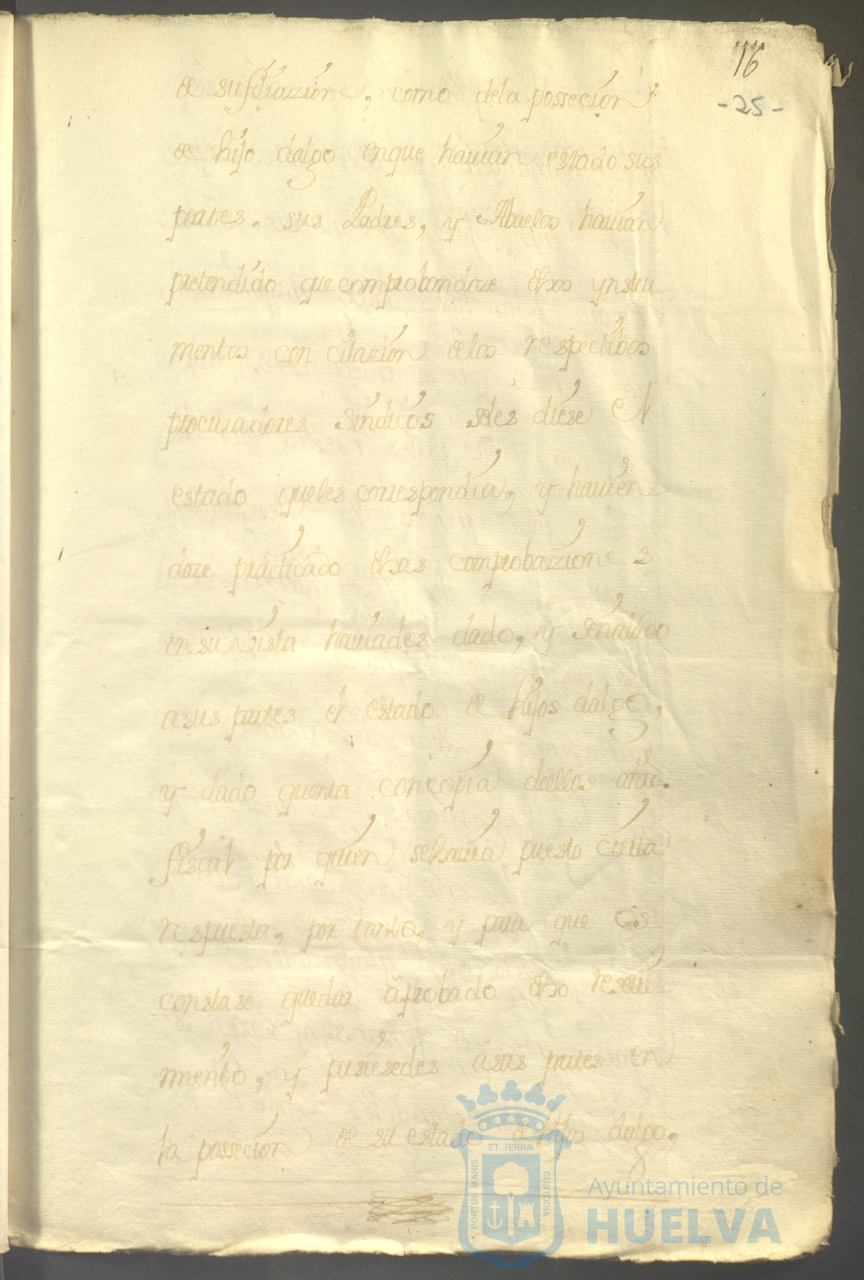 16
-25-
de su filiazzion, como dela possecion
de hijo dalgo enque hauian estado sus
partes, sus Padres, y Abuelos hauian
pretendido que comprobandoze dhos ynstru
mentos con citazion delos respectibos
procuradores Sindicos seles diese el
estado queles correspondia, y hauien
doze practicado dhas comprobazziones
en su vista hauiades dado, y
asus partes el estado de hijos dalgo,
y dado quenta con copia dellos
fiscal por quien sehauia puesto cierta
respuesta, por tanto, y para que os
constase quedar aprobado dho
mento, y pusiesedes asus partes en
la possecion de su estado de hijos dalgo,
PORTUS MARIS ET TERRÆ CUSTODIA
Ayuntamiento de
HUELVA